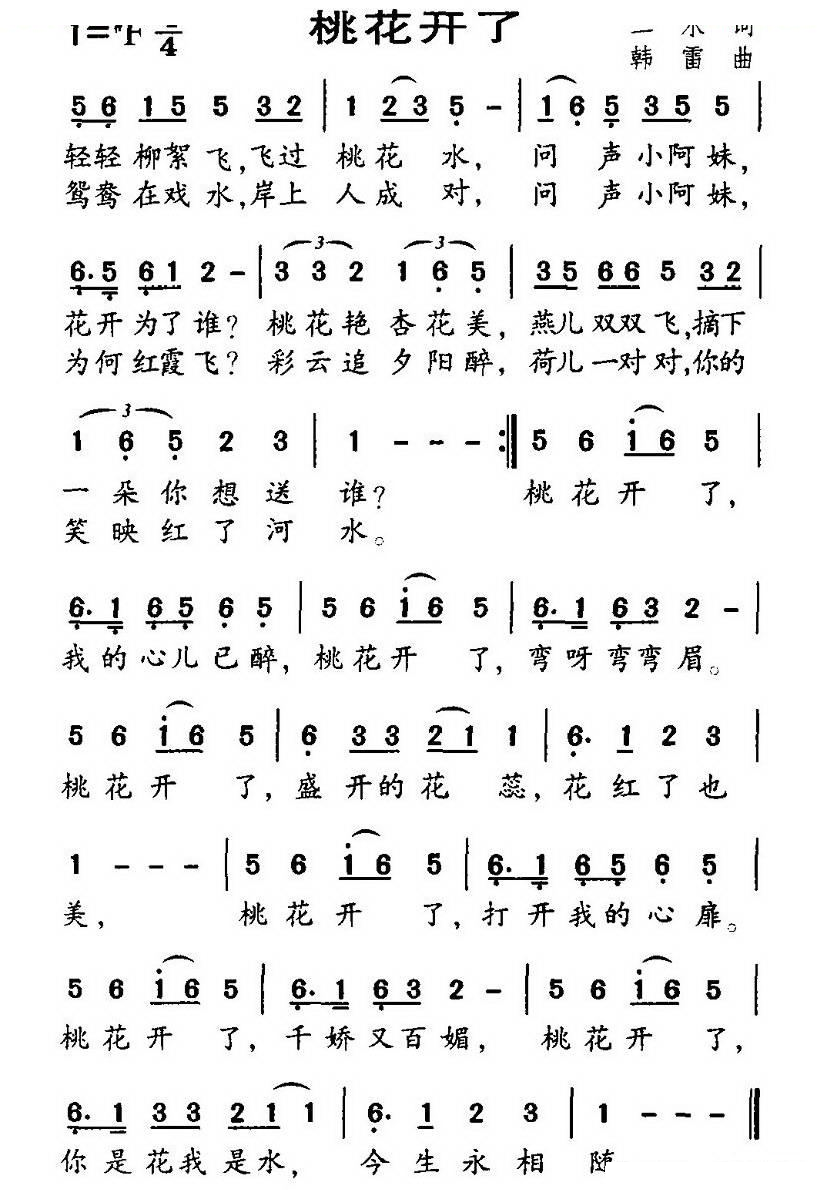 桃花开了
韩雷曲
5 6 1 5 5 3 2 | 1 2 3 5 - | 1 6 5 3 5 5 |
轻轻柳絮飞,飞过 桃花 水, 问 声小阿妹,
鸳鸯在戏水,岸上 人成 对, 问 声小阿妹,
6. 5 6 1 2 - | 3 3 2 1 6 5 | 3 5 6 6 5 3 2 |
花开为了谁? 桃花艳 杏花美, 燕儿双双飞,摘下
为何红霞飞? 彩云追 夕阳醉, 荷儿一对对,你的
1 6 5 2 3 | 1 - - - :| 5 6 i 6 5 |
一朵你想送 谁? 桃花开 了,
笑映红了河 水。
6. 1 6 5 6 5 | 5 6 i 6 5 | 6. 1 6 3 2 - |
我的心儿已醉, 桃花开 了, 弯呀弯弯眉。
5 6 i 6 5 | 6 3 3 2 1 1 | 6. 1 2 3 |
桃花开 了, 盛开的花 蕊, 花红了也
1 - - - | 5 6 i 6 5 | 6. 1 6 5 6 5 |
美, 桃花开 了, 打开我的心扉。
5 6 i 6 5 | 6. 1 6 3 2 - | 5 6 i 6 5 |
桃花开 了, 千娇又百媚, 桃花开 了,
6. 1 3 3 2 1 1 | 6. 1 2 3 | 1 - - - ‖
你是花我是水, 今生永相 随